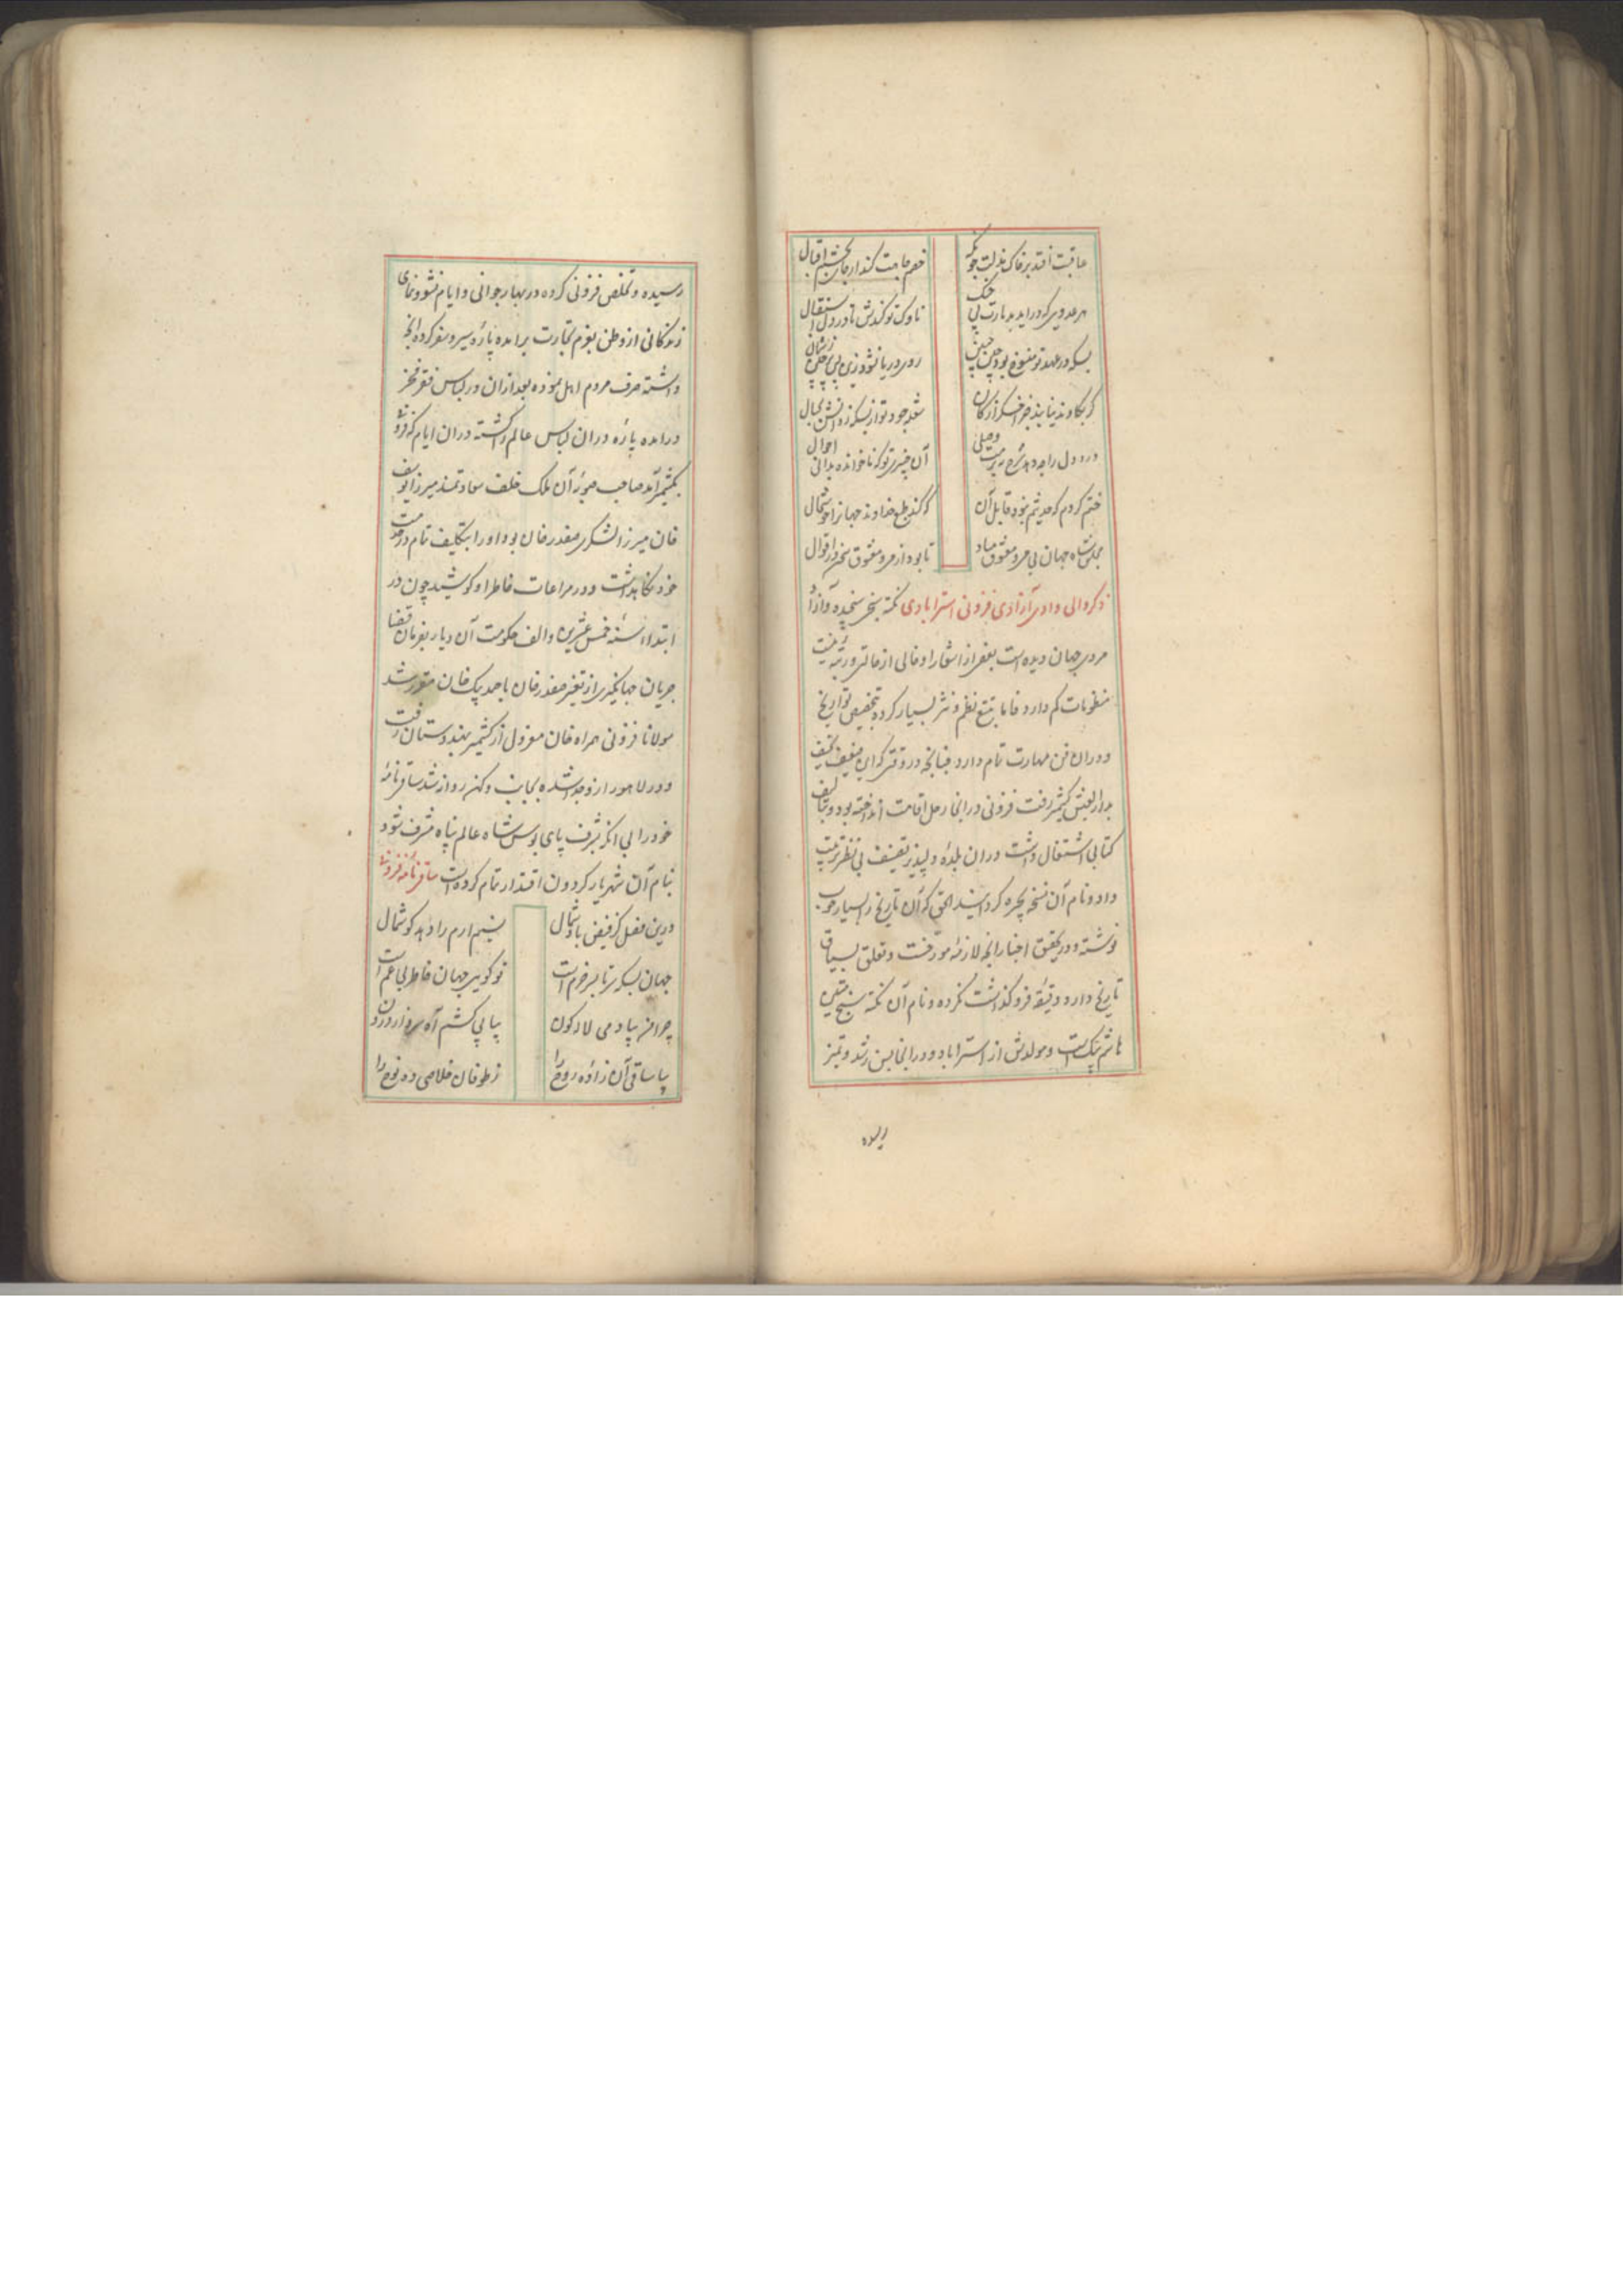 عاقبت افتد بر خاک مذلت چو نکه
خصم جاهت کند ار جای بچشم اقبال
هر عدوی که در اید بدیارت پی جنک
ناوک تو کندش تا در دل استقبال
بسکه در عهد تو منسوخ بود چین جبین
روی دریا نشود زین پی چین
در دل را چه دهم شرح
آن خبیری تو که ناخوانده بدانی احوال
ختم کردم که حدیثم نبود قابل آن
که کند طبع خداوند جهانرا خوشحال
مجلس شاه جهان بی می و معشوق مباد
تا بود از می و معشوق سخن در اقوال
ذکر والی وادی آزادی فزونی استرابادی نکته سنجی سنجیده و آزاده
مردی جهان دیده است بعضی از اشعار او خالی از حالتی و رتبه نیست
منظومات کم دارد فاما تتبع نظم و نثر بسیار کرده بتخصیص تواریخ
و دران فن مهارت تام دارد چنانچه در وقتی که این ضعیف نحیف
بدار العیش کشمیر رفت فزونی در انجا رحل اقامت انداخته بود و بتالیف
کتابی اشتغال داشت دران بلدهٔ دلپذیر تصنیف بی نظیر ترتیب
داد و نام آن نسخه بحیره کردانید الحق که آن تاریخ را بسیار خوب
نوشته و در تحقیق اخبار انچه لازمهٔ مورخیست و تعلق بسیاق
تاریخ دارد دقیقهٔ فرو کذاشت نکرده و نام آن نکته سنج متین
هاشم بیک است و مولدش از استراباد و در انجا بسن رشد و تمیز
رسیده
رسیده و تخلص فزونی کرده در بهار جوانی و ایام نشو و نمای
زندکانی از وطن بعزم تجارت برامده پارهٔ سیر و سفر کرده انچه
داشته صرف مردم اهل نموده بعد ازان در لباس فقر و فخر
درامده پارهٔ دران لباس عالم را کشته دران ایام که فزونی
بکشمیر آمد صاحب صوبهٔ آن ملک خلف سعادتمند میرزا یوسف
خان میرزا لشکری صفدر خان بود او را بتکلیف تمام در خدمت
خود نکاهداشت و در مراعات خاطر او کوشید چون در
ابتداء سنه خمس عشرین و الف حکومت آن دیار بفرمان قضا
جریان جهانکیری از تغیر صفدر خان باحمد بیک خان مقرر شد
مولانا فزونی همراه خان معزول از کشمیر بهندوستان رفت
و در لاهور ازو جدا شده بجانب دکن روانه شد ساقی نامهٔ
خود را بی انکه بشرف پای بوس شاه عالم پناه مشرف شود
بنام آن شهریار کردون اقتدار تمام کرده است ساقی نامه فزونی
درین فصل کز فیض باد شمال
نسیم ارم را دهد کوشمال
جهان بسکه سر تا بسر خرم است
تو کویی جهان خاطر بی غم است
چرا من بیاد می لاله کون
پیاپی کشم آه سرد از درون
بیا ساقی آن زادهٔ روح را
ز طوفان خلاصی ده نوح را